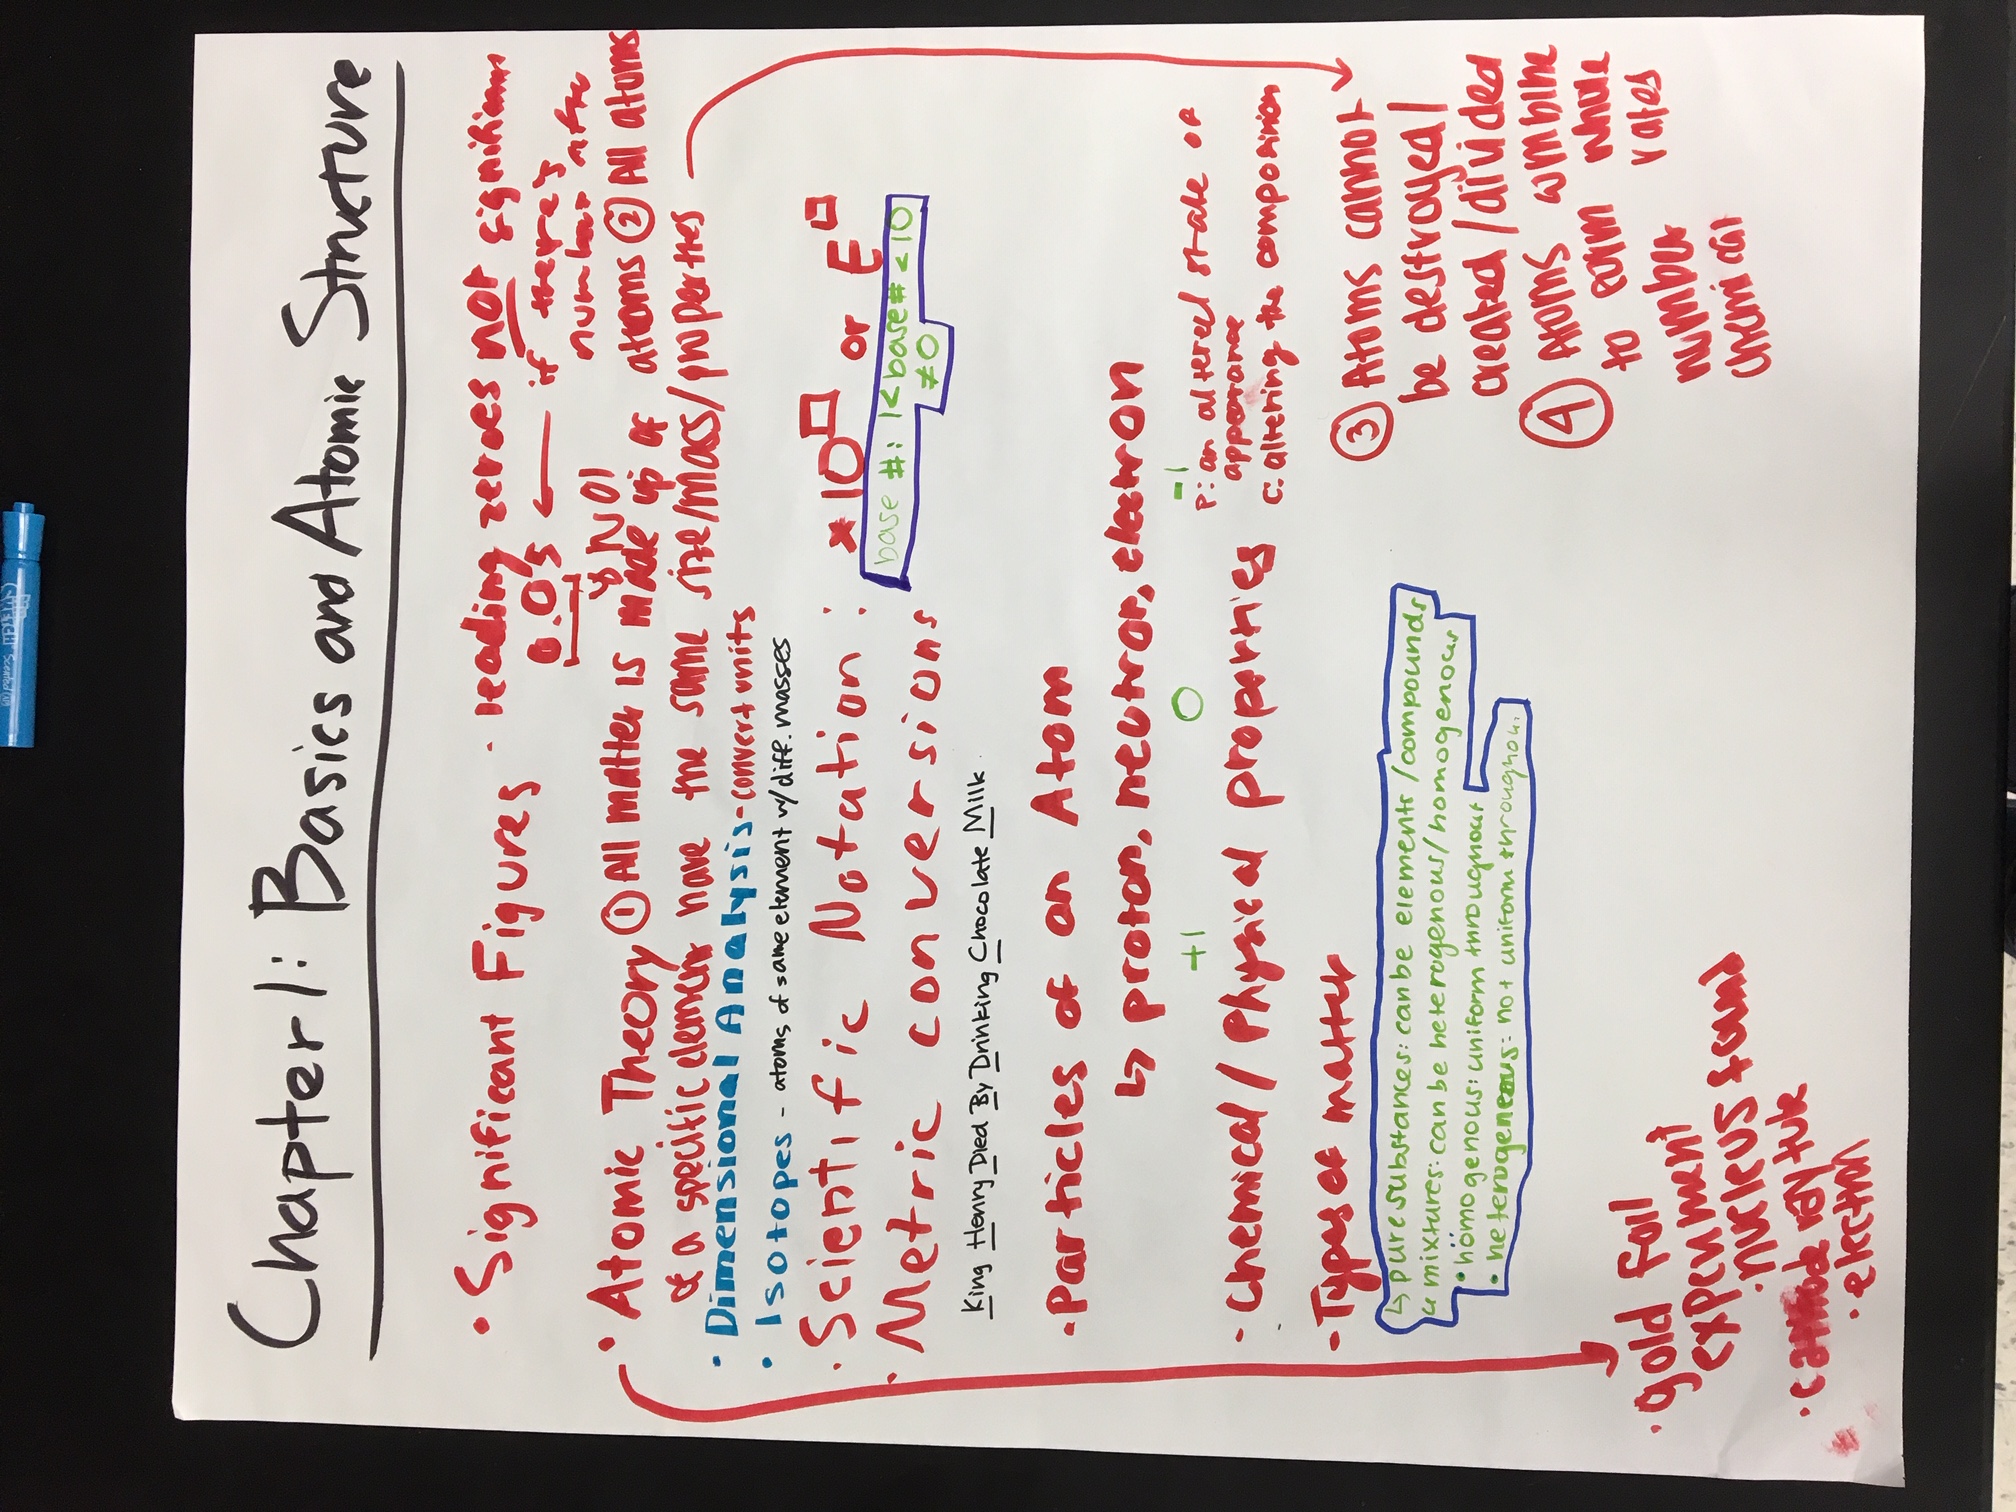 Chapter 1: Basics and Atomic Structure
• Significant Figures · leading zeroes not significant
0.05 ← if there's
number after
↳ NO!
• Atomic Theory ① All matter is made up of atoms ② All atoms
of a specific element have the same size/mass/properties
• Dimensional Analysis - convert units
• Isotopes - atoms of same element w/diff. masses
• Scientific Notation: × 10□ or E□
base #: 1 < base # < 10
≠ 0
• Metric conversions
King Henry Died By Drinking Chocolate Milk.
• Particles of an Atom
↳ proton, neutron, electron
+1 0 -1
• Chemical / Physical properties
p: an altered state or
appearance
c: altering the composition
• Types of matter
↳ pure substances: can be elements/compounds
↳ mixtures: can be heterogenous/homogenous
• homogenous: uniform throughout
• heterogeneous: not uniform throughout
③ Atoms cannot
be destroyed/
created/divided
④ Atoms combine
to form whole
number rates
chemical
· gold foil
experiment
· nucleus found
· cathode ray tube
· electron
Mr. Sketch Scented